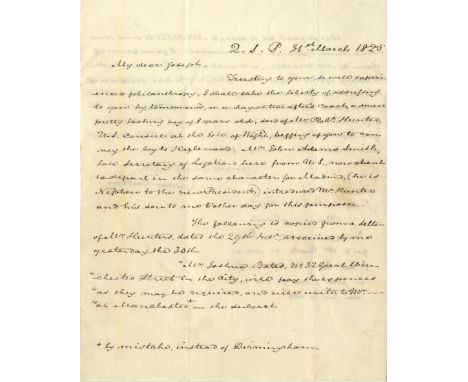 2. S. P. 31st March 1825
My dear Joseph.
Trusting to your so well experi-
enced philanthropy, I shall take the liberty of addressing
to you by tomorrow's, or a day or two after's Coach, a smart
pretty looking boy of 8 years old, son of Mr. Robt. Hunter,
U.S. Consul at the Isle of Wight, begging of you to con-
vey the boy to Hazlewood. Mr. John Adams Smith,
late Secretary of Legation here from U.S., now about
to depart in the same character for Madrid, (he is
Nephew to the new President) introduced Mr. Hunter
and his son to me t'other day for this purpose.
The following is copied from a letter
of Mr. Hunter's dated the 29th Inst., received by me
yesterday the 30th.
"Mr. Joshua Bates, No. 32 Great Win-
"chester Street in the City, will pay the expences
"as they may be required, and will write to Mr.
"at Manchester+ on the subject.
+ by mistake, instead of Birmingham.